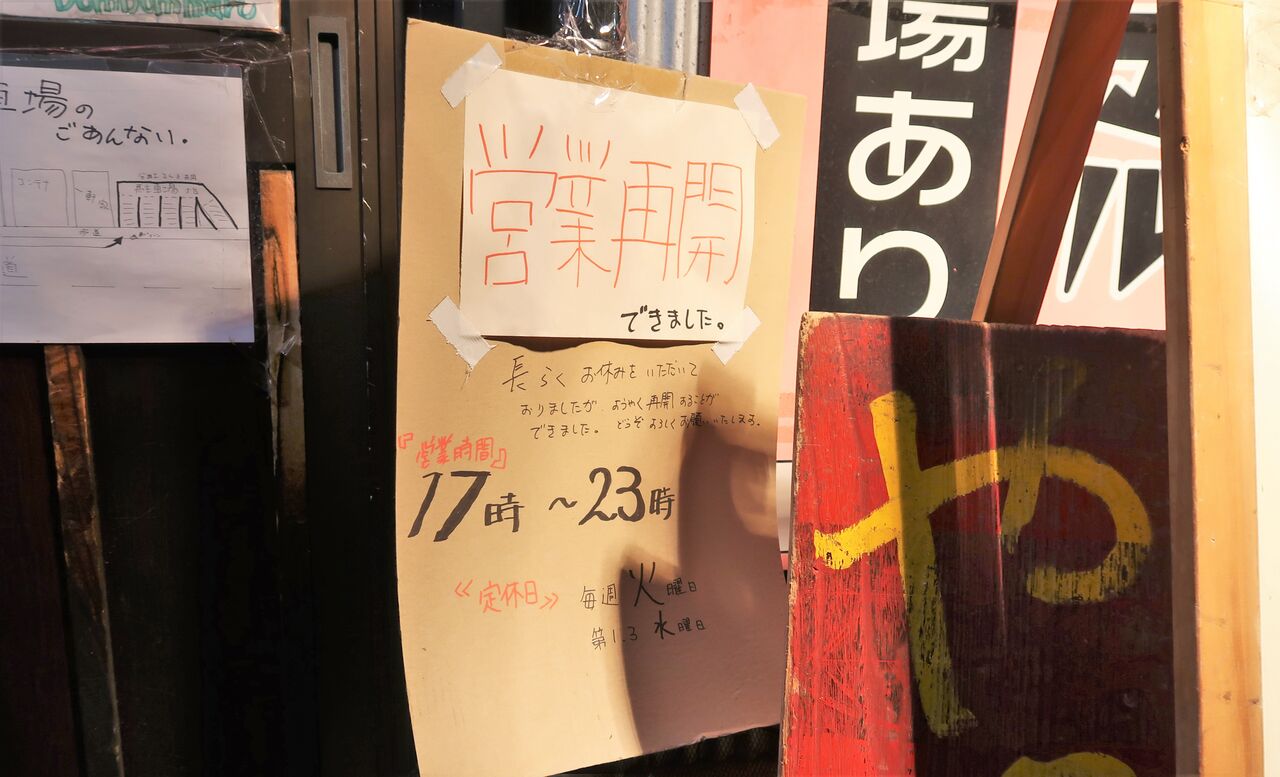 車場の
ごあんない。
コンテナ
営業再開
できました。
長らく お休みを いただいて
おりましたが、ようやく再開することが
できました。 どうぞ よろしくお願いいたします。
『営業時間』
17時 ~23時
《定休日》 毎週 火曜日
第1.3 水曜日
場あり
や